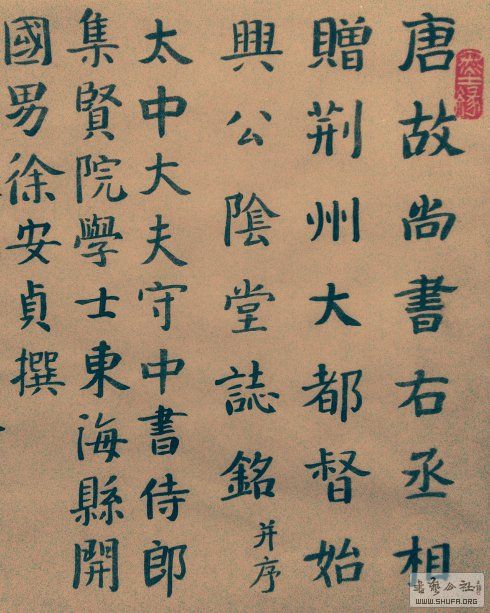 唐故尚書右丞相
贈荆州大都督始
興公陰堂誌銘并序
太中大夫守中書侍郎
集賢院學士東海縣開
國男徐安貞撰
書藝公社
WWW.SHUFA.ORG